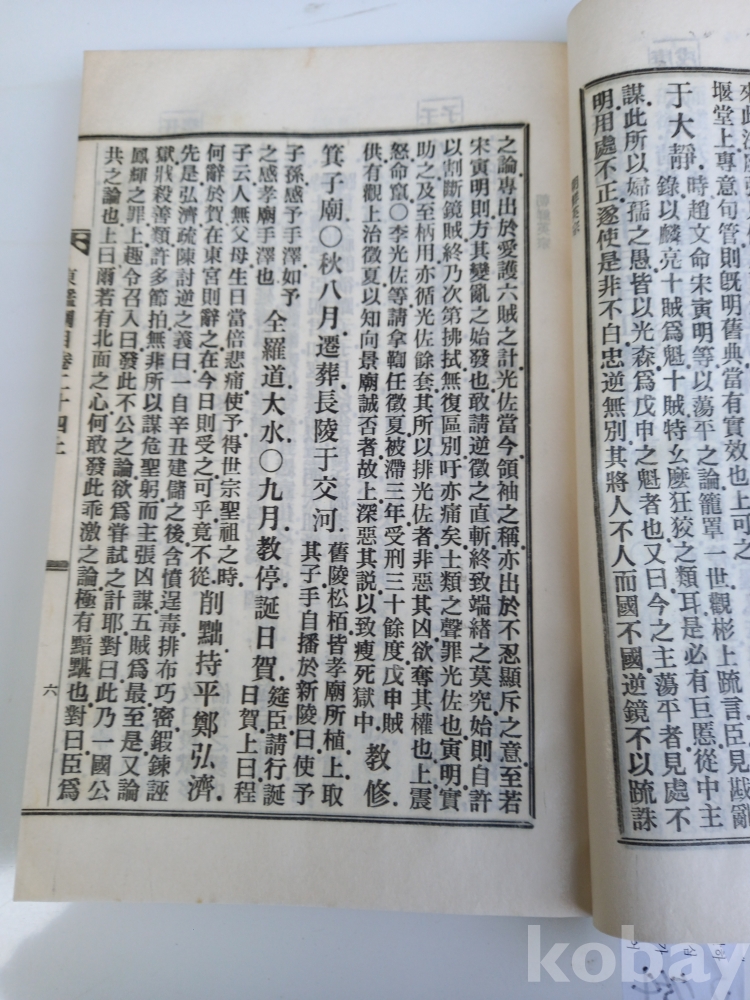 堰堂上專意句管則旣明舊典當有實效也上可之
時趙文命宋寅明等以蕩平之論籠罩一世觀彬上䟽言臣見戡亂
于大靜
錄以麟亮十賊爲魁十賊特幺麽狂狡之類耳是必有巨慝從中主
謀此所以婦孺之愚皆以光森爲戊申之魁者也又曰今之主蕩平者見處不
明用處不正遂使是非不白忠逆無別其將人不人而國不國逆鏡不以䟽誅
之論專出於愛護六賊之計光佐當今領袖之稱亦出於不忍顯斥之意至若
宋寅明則方其變亂之始發也敢請逆徵之直斬終致端緖之莫究始則自許
以割斷鏡賊終乃次第拂拭無復區別吁亦痛矣士類之聲罪光佐也寅明實
助之及至柄用亦循光佐餘套其所以排光佐者非惡其凶欲奪其權也上震
怒命竄〇李光佐等請拿鞫任徵夏被滯三年受刑三十餘度戊申賊
供有觀上治徵夏以知向景廟誠否者故上深惡其説以致瘐死獄中 教修
箕子廟〇秋八月遷葬長陵于交河
舊陵松栢皆孝廟所植上取
其子手自播於新陵曰使予
子孫感予手澤如予
之感孝廟手澤也
全羅道大水〇九月教停誕日賀
筵臣請行誕
日賀上曰程
子云人無父母生日當倍悲痛使予得世宗聖祖之時
何辭於賀在東宮則辭之在今日則受之可乎竟不從
削黜持平鄭弘濟
先是弘濟疏陳討逆之義曰一自辛丑建儲之後含憤逞毒排布巧密鍜鍊誣
獄戕殺善類許多節拍無非所以謀危聖躬而主張凶謀五賊爲最至是又論
鳳輝之罪上趣令召入曰發此不公之論欲爲嘗試之計耶對曰此乃一國公
共之論也上曰爾若有北面之心何敢發此乖激之論極有黯黮也對曰臣爲
東鑑綱目卷二十四上
六
kobay